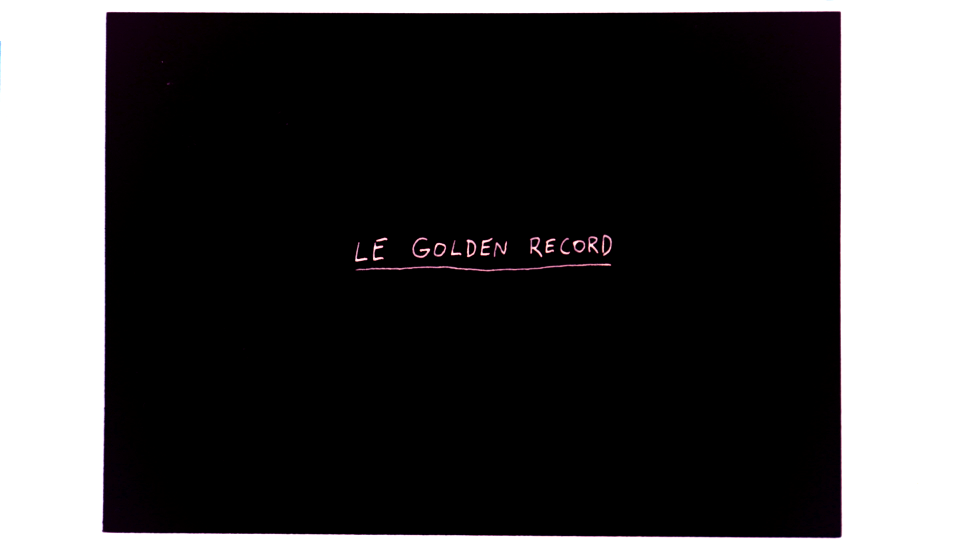 LE GOLDEN RECORD